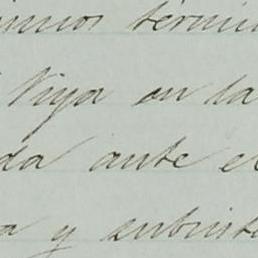 imos términ
Viya en la
da ante el
a y subsiste